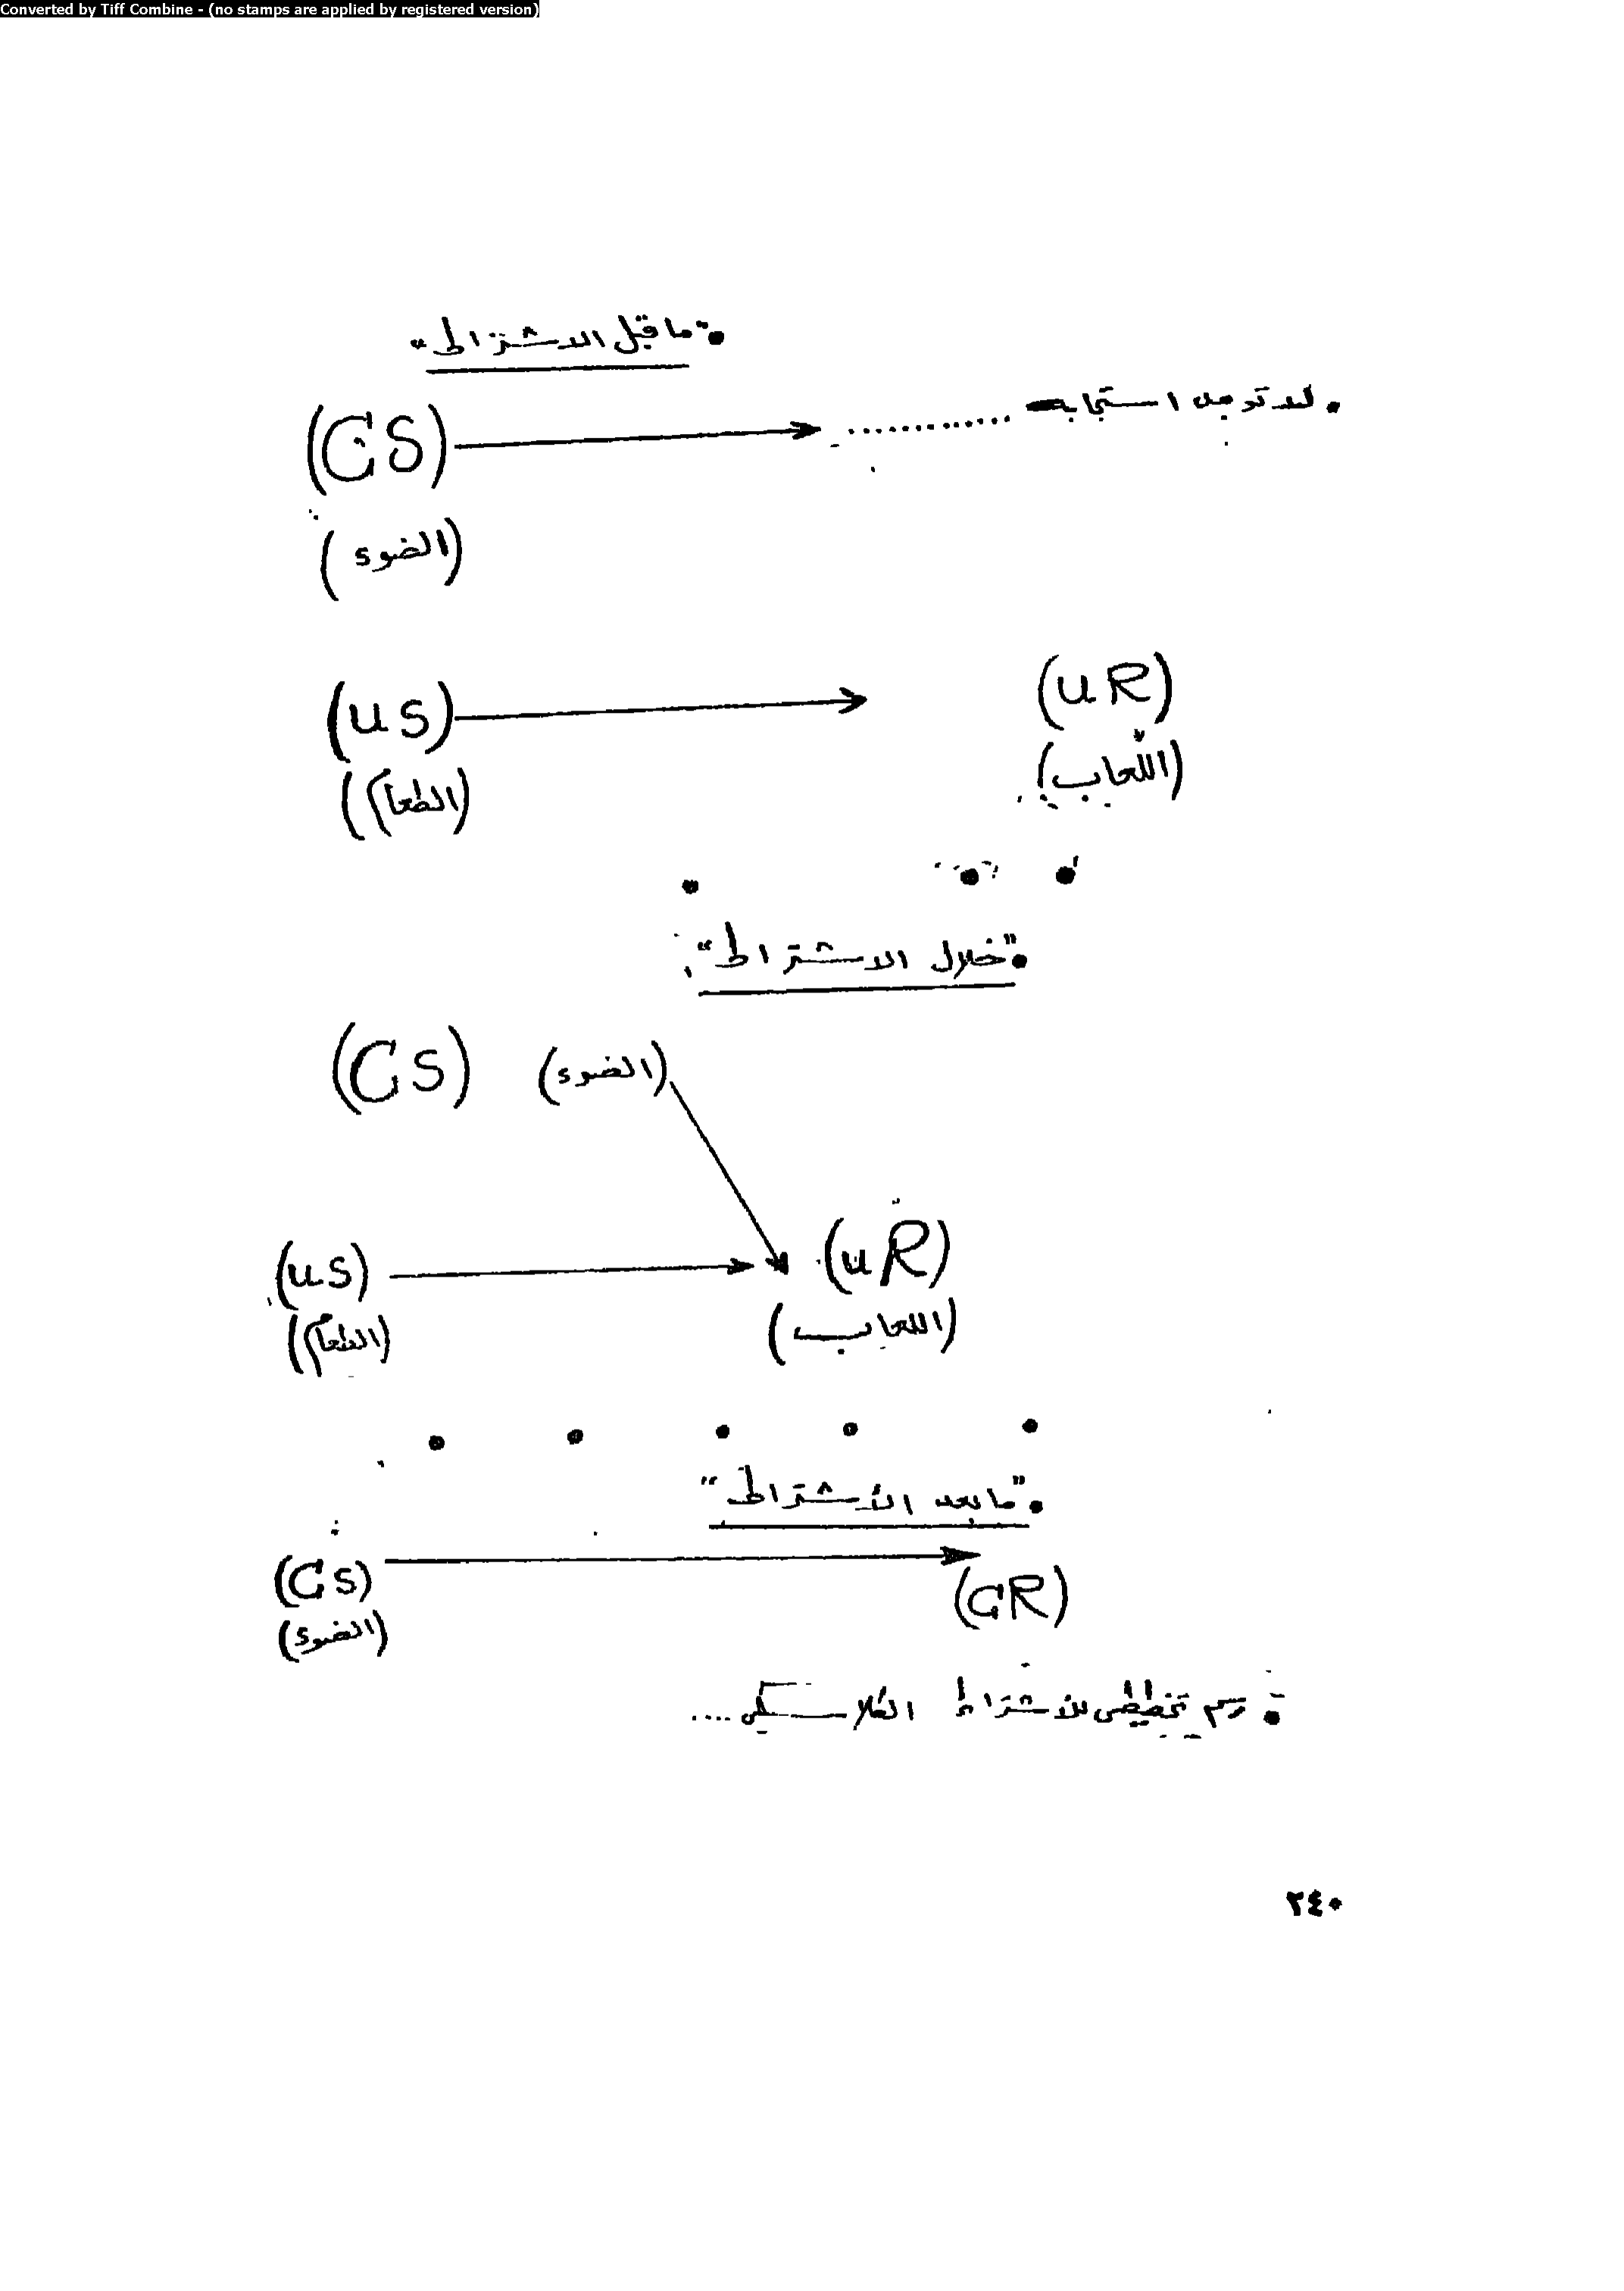 Converted by Tiff Combine - (no stamps are applied by registered version)
• "ما قبل الاشتراط"
(CS) ............ • لا توجد استجابه
(الضوء)
(us) (uR)
(الطعام) (اللعاب)
• "خلال الاشتراط"
(CS) (الضوء)
(us) (uR)
(الطعام) (اللعاب)
• "ما بعد الأشتراط"
(CS) (CR)
(الضوء)
• رسم تخطيطى للأشتراط الكلاسيكى ....
٢٤٠